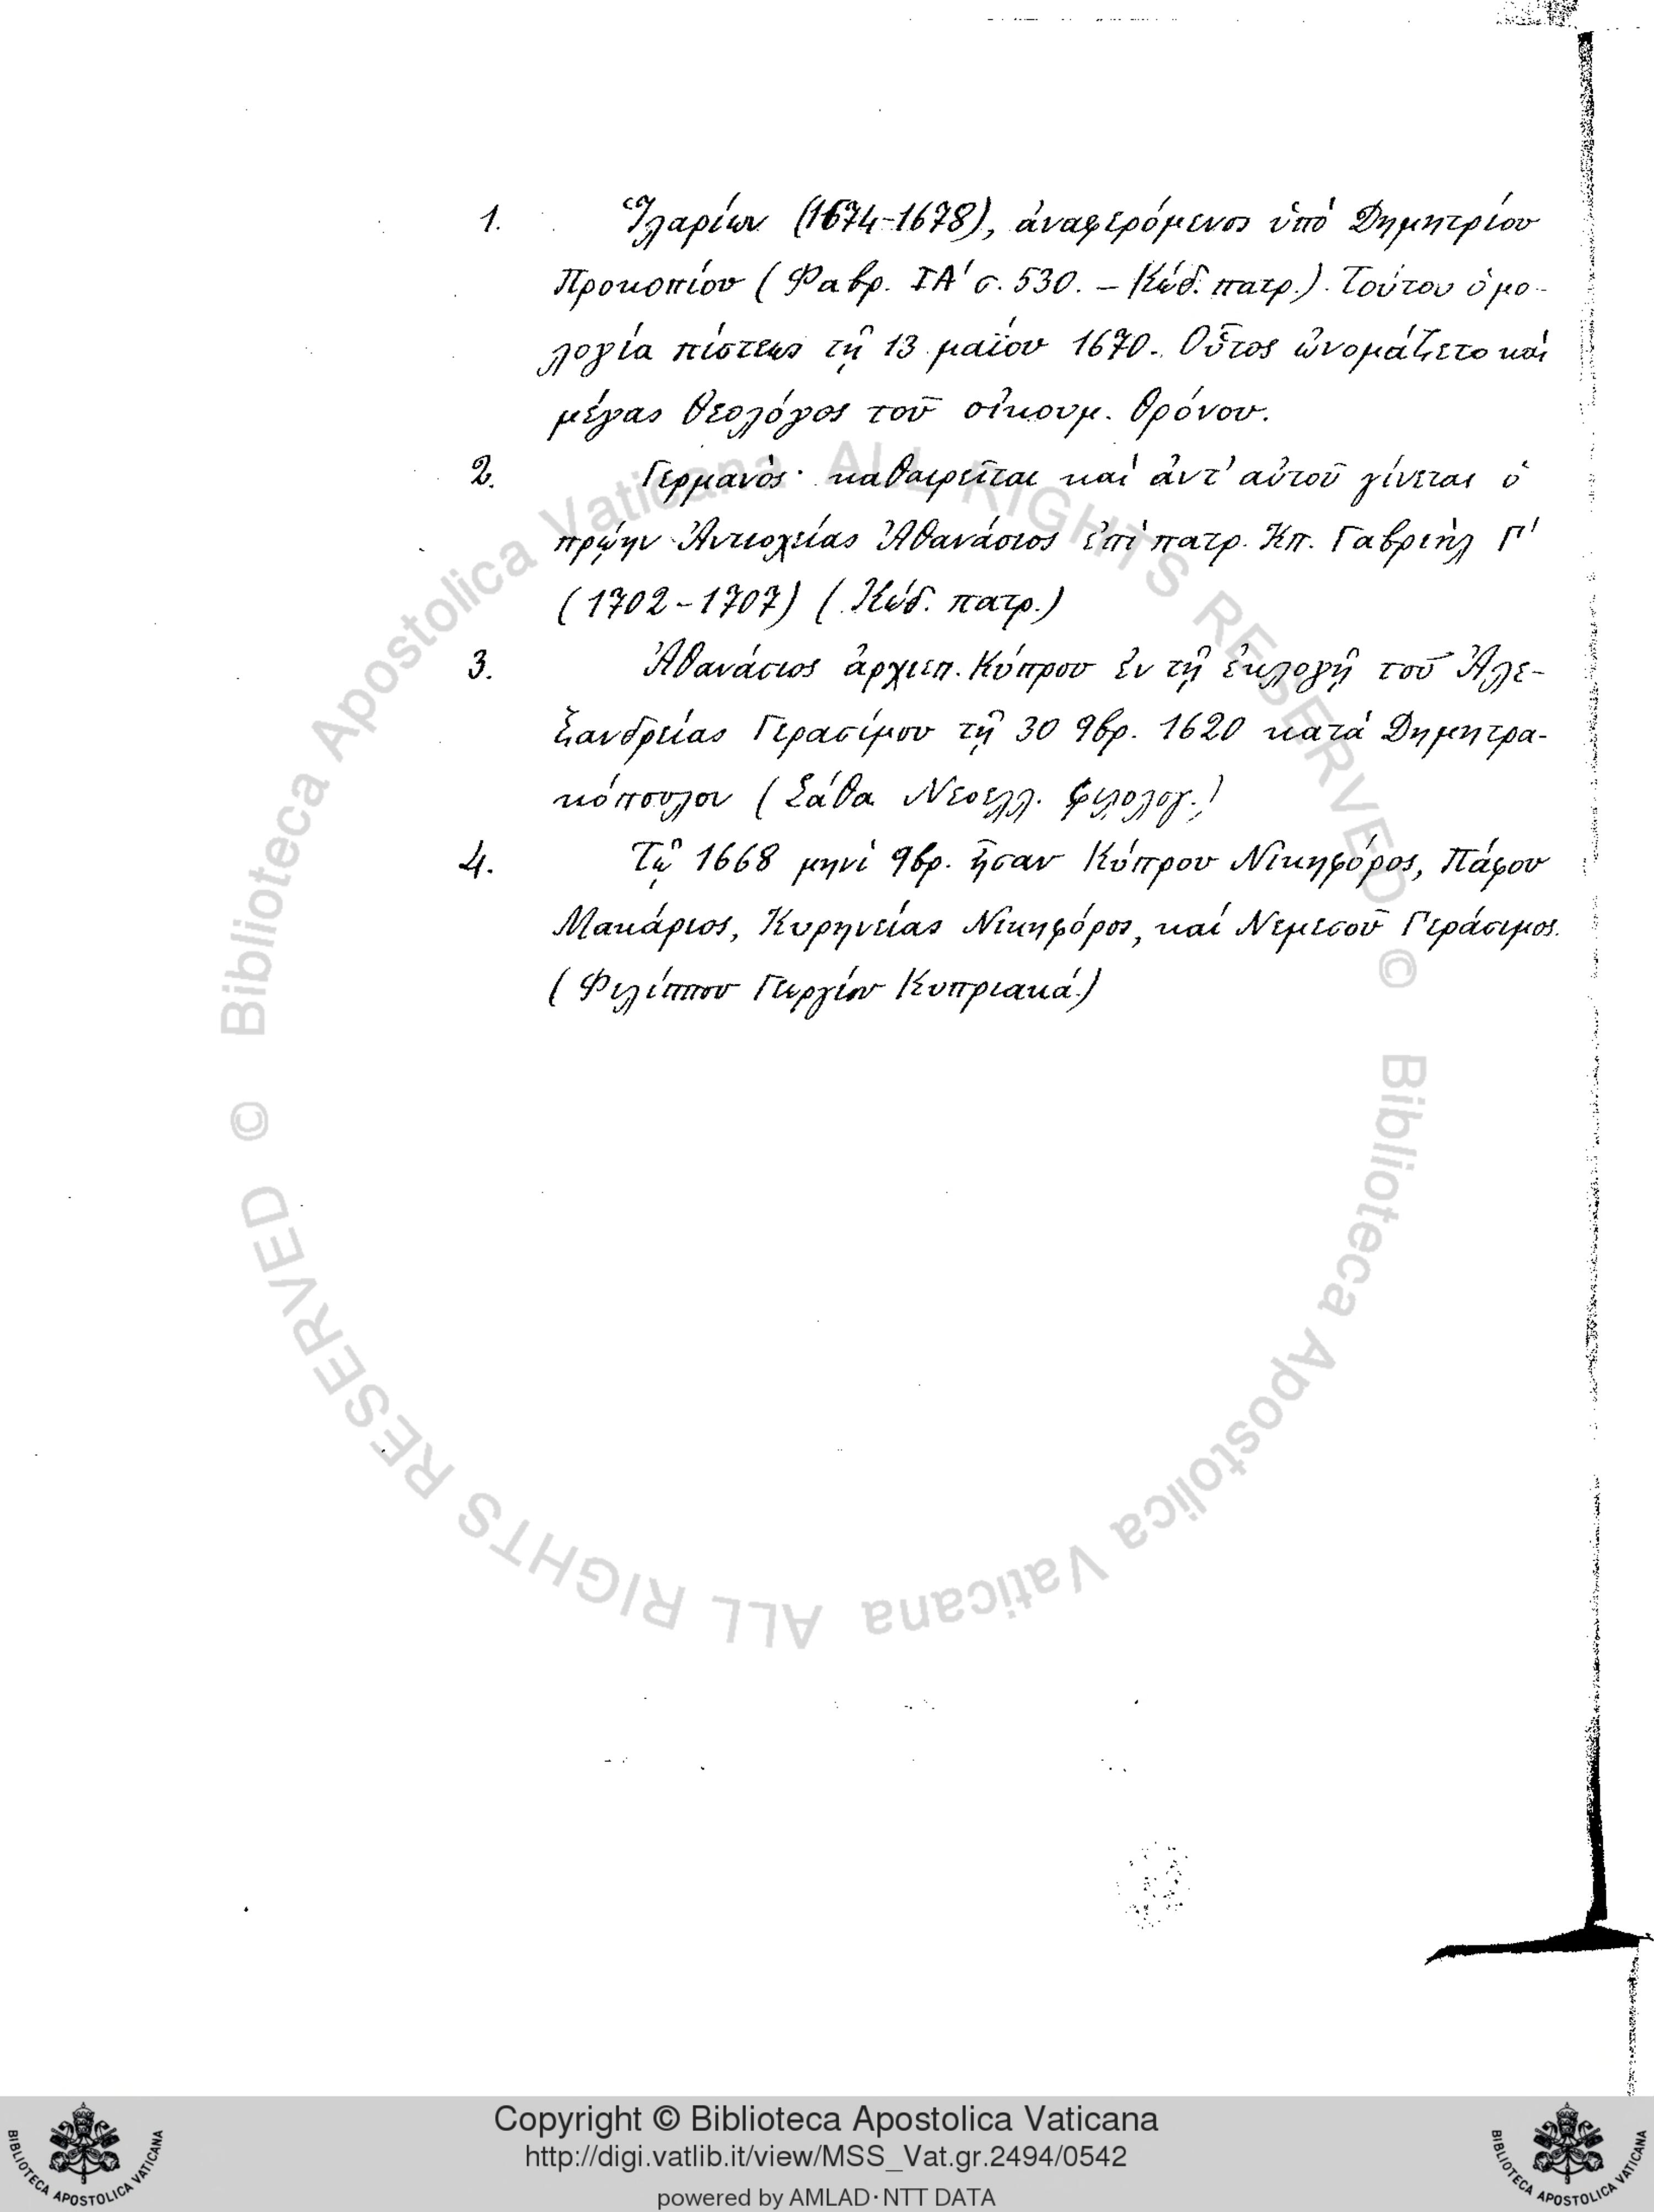 1. Ἱλαρίων (1674-1678), ἀναφερόμενος ὑπὸ Δημητρίου
Προκοπίου (Φαβρ. ΙΑ' σ. 530. – Κώδ. πατρ.). Τούτου ὁμο-
λογία πίστεως τῇ 13 μαΐου 1670. Οὗτος ὠνομάζετο καὶ
μέγας θεολόγος τοῦ οἰκουμ. θρόνου.
2. Γερμανὸς· καθαιρεῖται καὶ ἀντ' αὐτοῦ γίνεται ὁ
πρῴην Ἀντιοχείας Ἀθανάσιος ἐπὶ πατρ. Κπ. Γαβριὴλ Γ'
(1702-1707) (Κώδ. πατρ.)
3. Ἀθανάσιος ἀρχιεπ. Κύπρου ἐν τῇ ἐκλογῇ τοῦ Ἀλε-
ξανδρείας Γερασίμου τῇ 30 9βρ. 1620 κατὰ Δημητρα-
κόπουλον (Σάθα Νεοελλ. φιλολογ.)
4. Τῷ 1668 μηνὶ 9βρ. ἦσαν Κύπρου Νικηφόρος, Πάφου
Μακάριος, Κυρηνείας Νικηφόρος, καὶ Νεμεσοῦ Γεράσιμος.
(Φιλίππου Γεωργίου Κυπριακά.)
© Biblioteca Apostolica Vaticana ALL RIGHTS RESERVED
© Biblioteca Apostolica Vaticana ALL RIGHTS RESERVED
Copyright © Biblioteca Apostolica Vaticana
http://digi.vatlib.it/view/MSS_Vat.gr.2494/0542
powered by AMLAD·NTT DATA
BIBLIOTECA APOSTOLICA VATICANA
BIBLIOTECA APOSTOLICA VATICANA